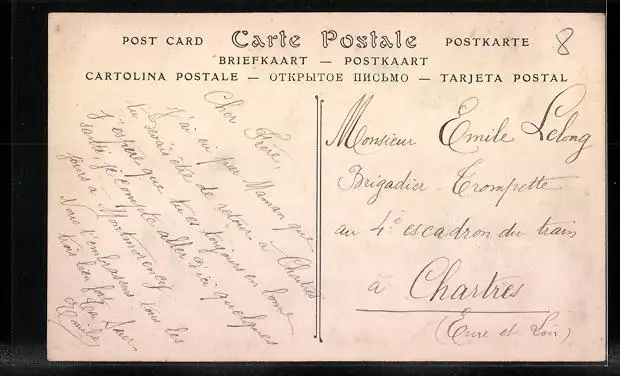 POST CARD Carte Postale POSTKARTE
BRIEFKAART — POSTKAART
CARTOLINA POSTALE — ОТКРЫТОЕ ПИСЬМО — TARJETA POSTAL
8
Cher Frère,
J'ai su par Maman que
tu serais été de retour à Chartres
J'espère que tu es toujours en bonne
santé, je compte aller d'ici quelques
jours à Montmorency
Nous t'embrassons tous les
trois bien fort Ta Sœur
Emilie
Monsieur Emile Lelong
Brigadier Trompette
au 4e escadron du train
à Chartres
(Eure et Loir)